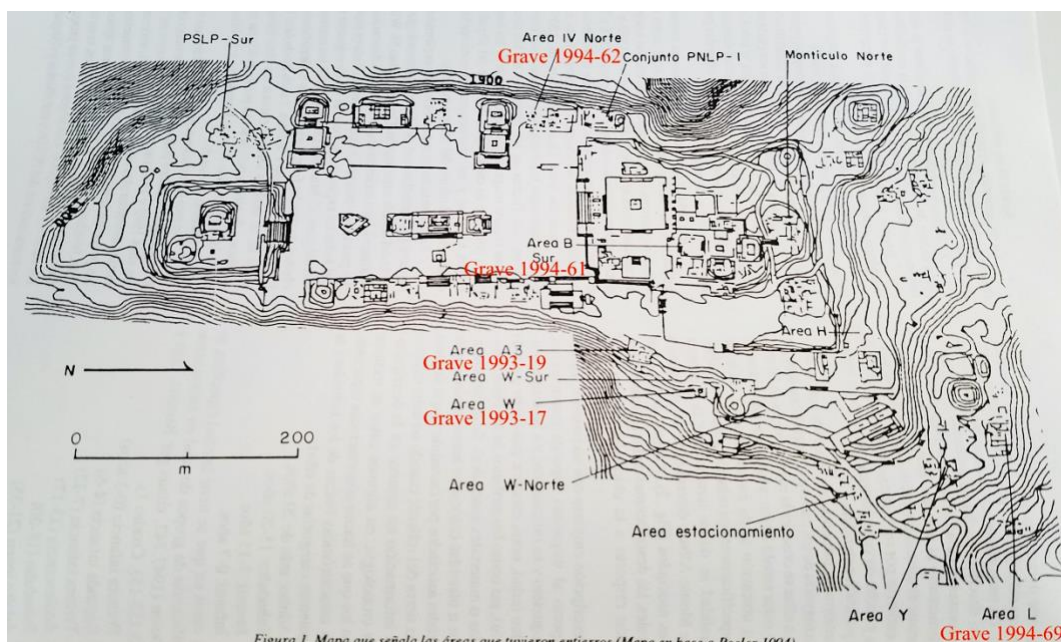 PSLP-Sur
Area IV Norte
Grave 1994-62
Conjunto PNLP-I
Montículo Norte
1900
1900
Area B
Sur
Grave 1994-61
Area H
Area A3
Grave 1993-19
Area W-Sur
Area W
Grave 1993-17
N
0 200
m
Area W-Norte
Area estacionamiento
Area Y
Area L
Grave 1994-69
Figura 1. Mapa que señala las áreas que tuvieron entierros (Mapa en base a Peeler 1994)